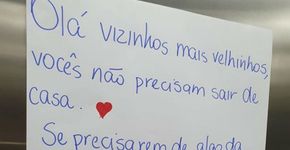 Olá vizinhos mais velhinhos,
vocês não precisam sair de
casa.
Se precisarem de